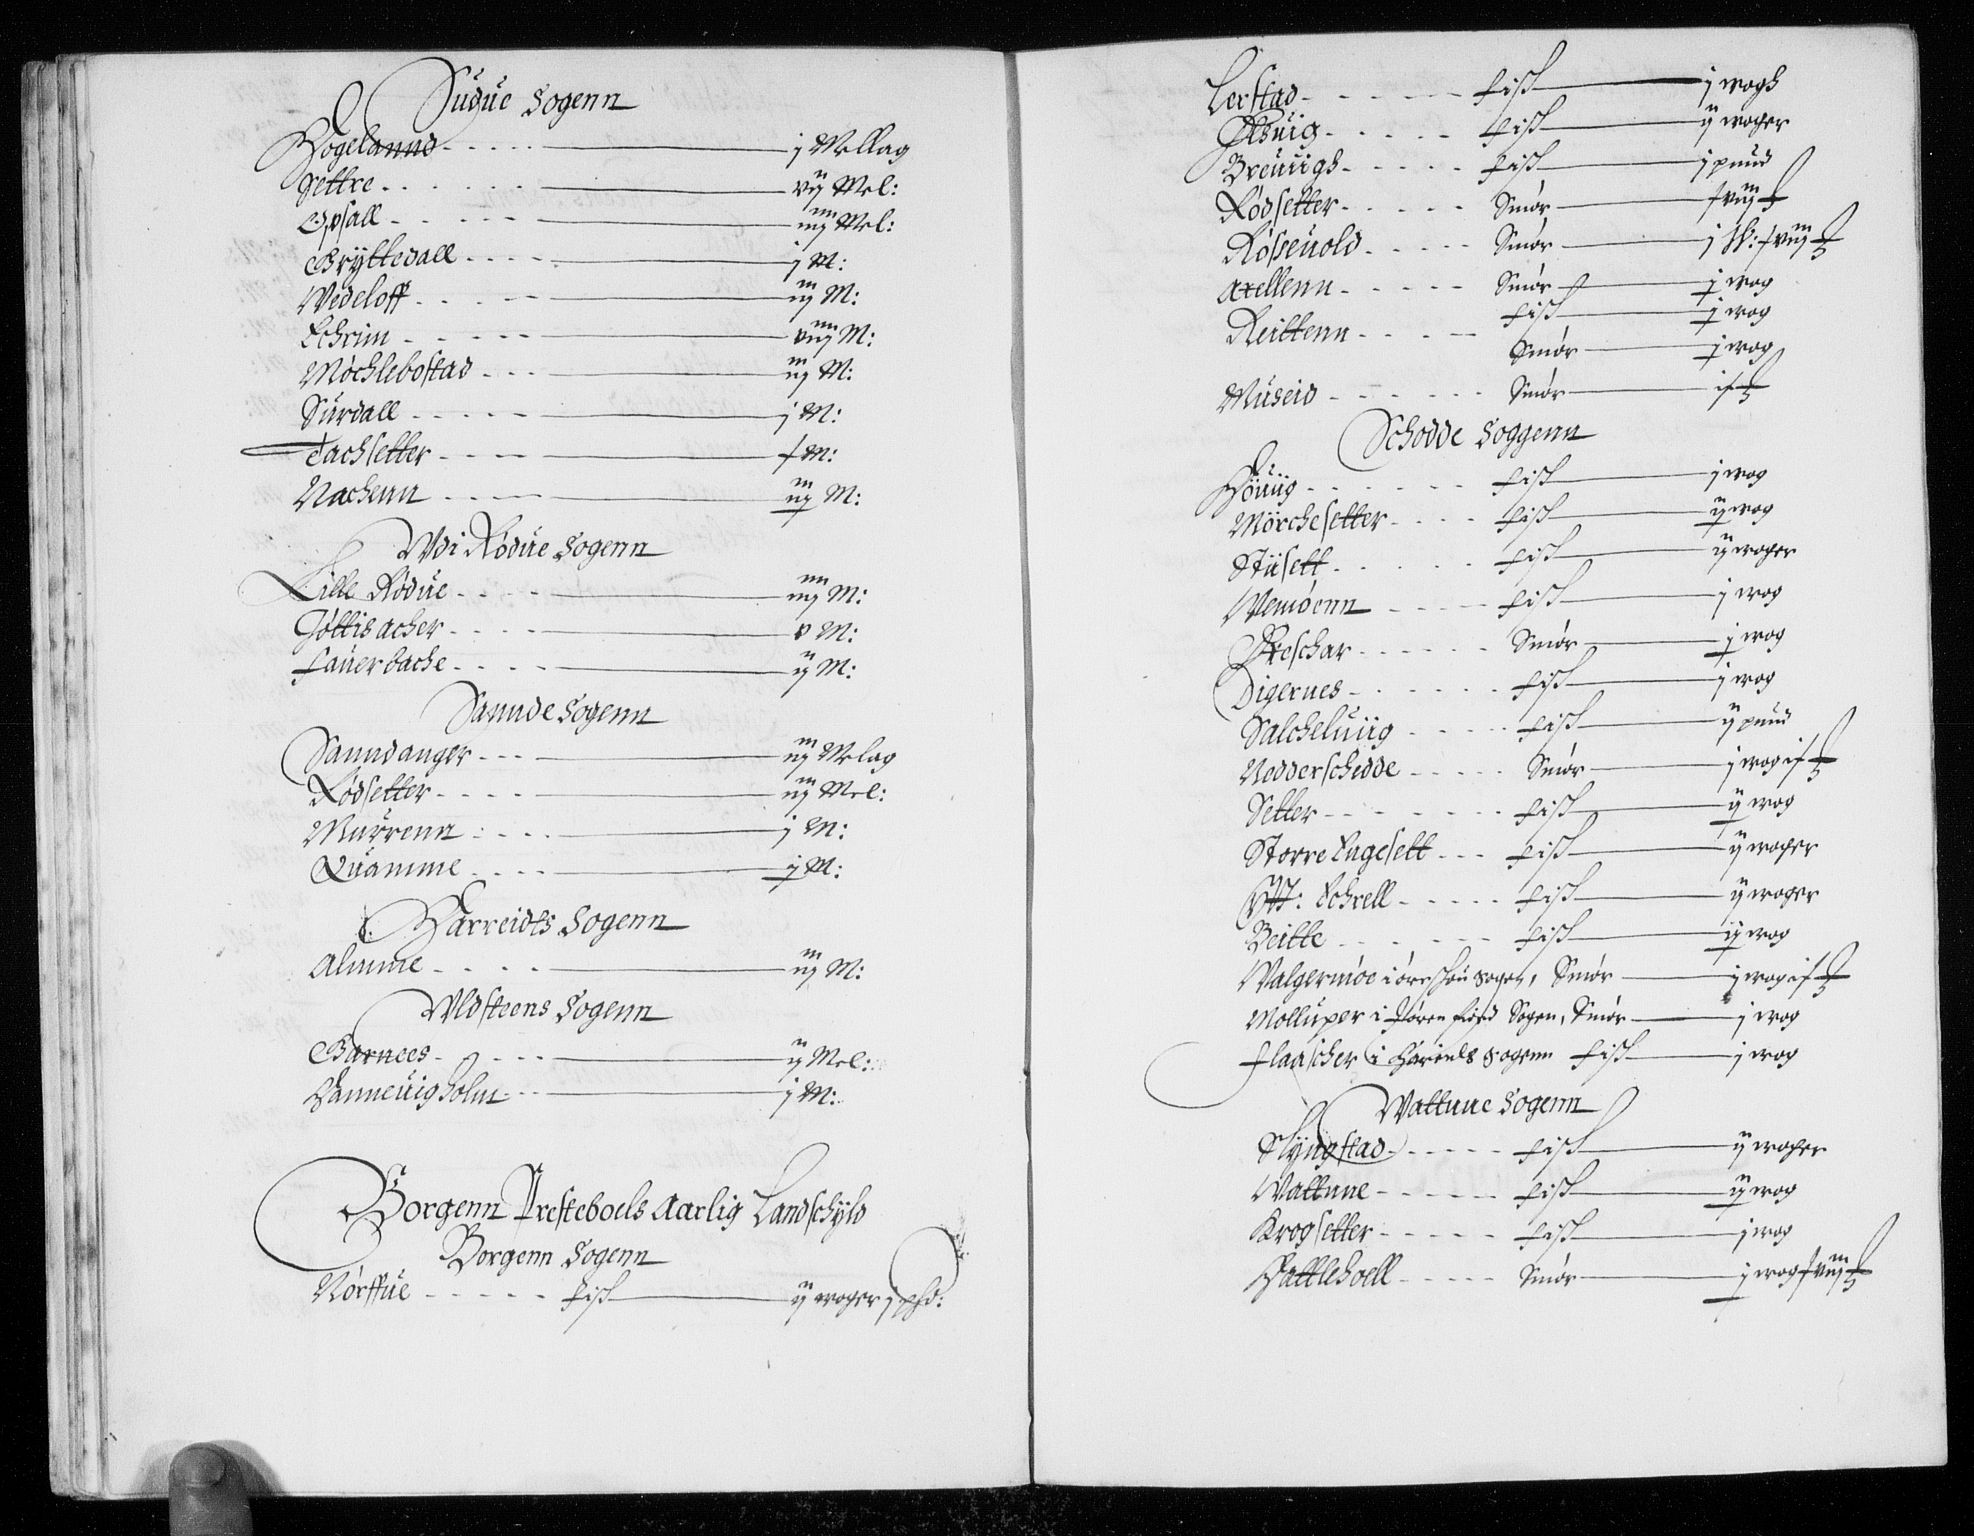 Sudue Sogenn
Hogelannd - - - - - j Mellag
Settre - - - - - vij Mel:
Opsall - - - - - iiij Mel:
Bryttedall - - - - j M:
Vedeloff - - - - iij M:
Echrim - - - - - viij M:
Møchlebostad - - - iij M:
Surdall - - - - - j M:
Tachsetter - - - - M:
Nachenn - - - - iij M:
Vdi Rødue Sogenn
Lille Rødue - - - - iiij M:
Jøttisacher - - - - v M:
Fauerbache - - - - ij M:
Sannde Sogenn
Sanndanger - - - iij Melag
Rødsetter - - - - iij Mel:
Murrenn - - - - j M:
Quamme - - - - j M:
Harreidts Sogenn
Almme - - - - iij M:
Vldsteens Sogenn
Barnees - - - - ij Mel:
Hanneuigholm - - - j M:
Borgenn Presteboels Aarlig Landschyld
Borgenn Sogenn
Nørffue - - - - - Fisk ij woger j pd:
Lerstad - - - - - Fisk j wogh
Olsuig - - - - - Fisk ij woger
Breuiigh - - - - - Fisk j pund
Rødsetter - - - - - Smør
Røsseuold - - - - Smør
Axellenn - - - - - Smør j wog
Reittenn - - - - Fisk j wog
Smør j wog
Museid - - - - - - Smør
Schodde Soggenn
Høuiig - - - - - - Fisk j wog
Mørchesetter - - - - Fisk ij wog
Stüsett - - - - - - Fisk ij woger
Vemøenn - - - - Fisk j wog
Freschar - - - - - - Smør j wog
Digernes - - - - - - Fisk j wog
Salcheluiig - - - - Fisk ij pund
Nedderschedde - - - - - Smør j wog
Setter - - - - - - - - Fisk ij wog
Storre Engesett - - - Fisk ij woger
Ytt: Echrell - - - - - Fisk ij woger
Beitte - - - - - - Fisk ij wog
Valgermøe i ørschou Sogen, Smør j wog
Molluper i Sogen, Smør j wog
Flaascher i Harends Sogenn Fisk j wog
Vattnne Sogenn
Slyngstad - - - - - - Fisk ij woger
Vattnne - - - - - Fisk ij wog
Krogsetter - - - - - Fisk j wog
Hattlehoell - - - - - Smør j wog